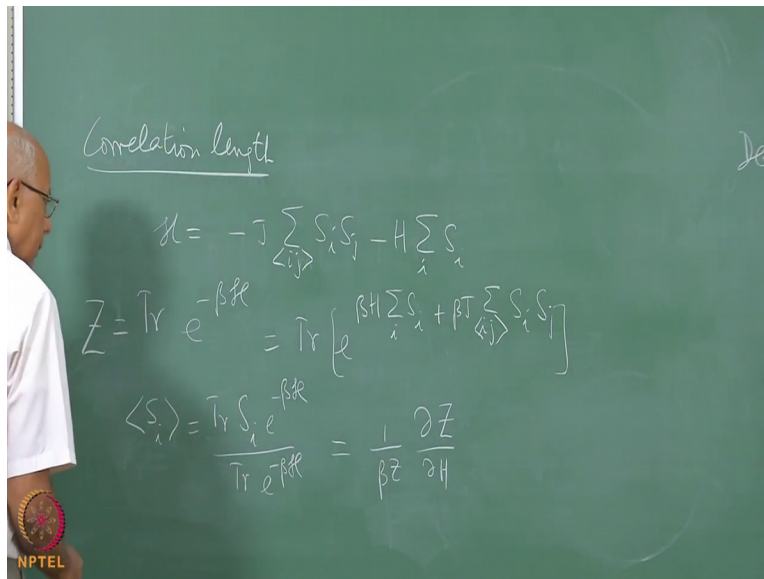 Correlation length
ℋ = - J ∑_{<ij>} S_i S_j - H ∑_i S_i
Z = Tr e^{-βℋ} = Tr [ e^{βH ∑_i S_i + βJ ∑_{<ij>} S_i S_j} ]
<S_i> = \frac{Tr S_i e^{-βℋ}}{Tr e^{-βℋ}} = \frac{1}{βZ} \frac{∂Z}{∂H}
De
NPTEL